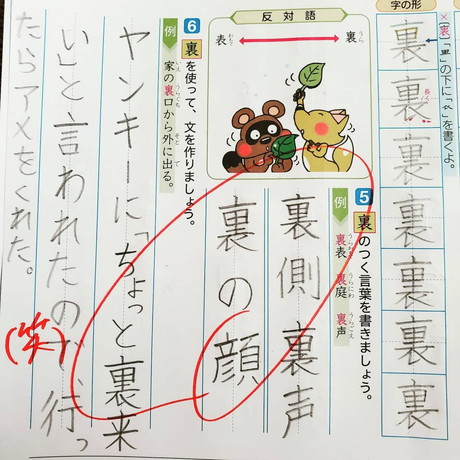 字の形
の下に
を書くよ。
裏
裏
裏
裏
裏
裏
裏
反対語
裏
表
5 裏のつく言葉を書きましょう。
例 裏表 裏庭 裏声
裏側 裏声
裏の顔
6 裏を使って、文を作りましょう。
例 家の裏口から外に出る。
ヤンキーに「ちょっと裏来
い」と言われたので、行っ
たらアメをくれた。
(笑)